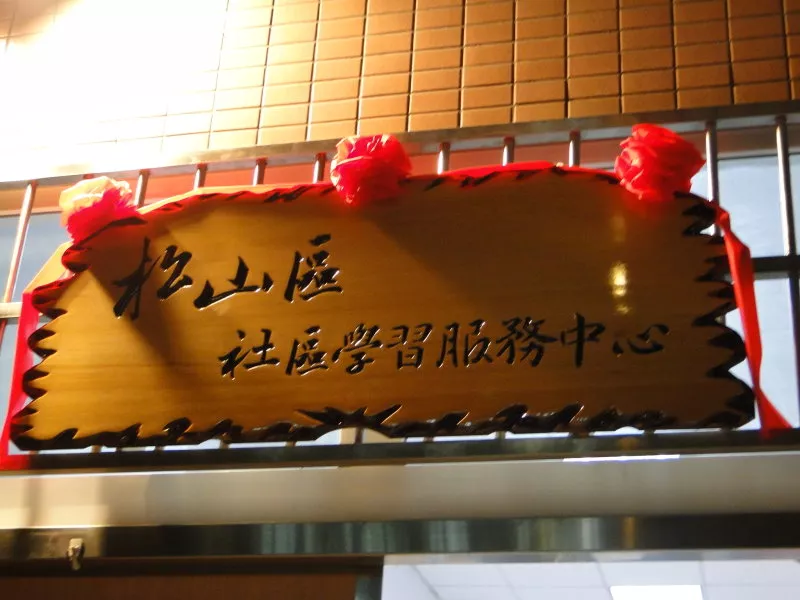 松山區
社區學習服務中心